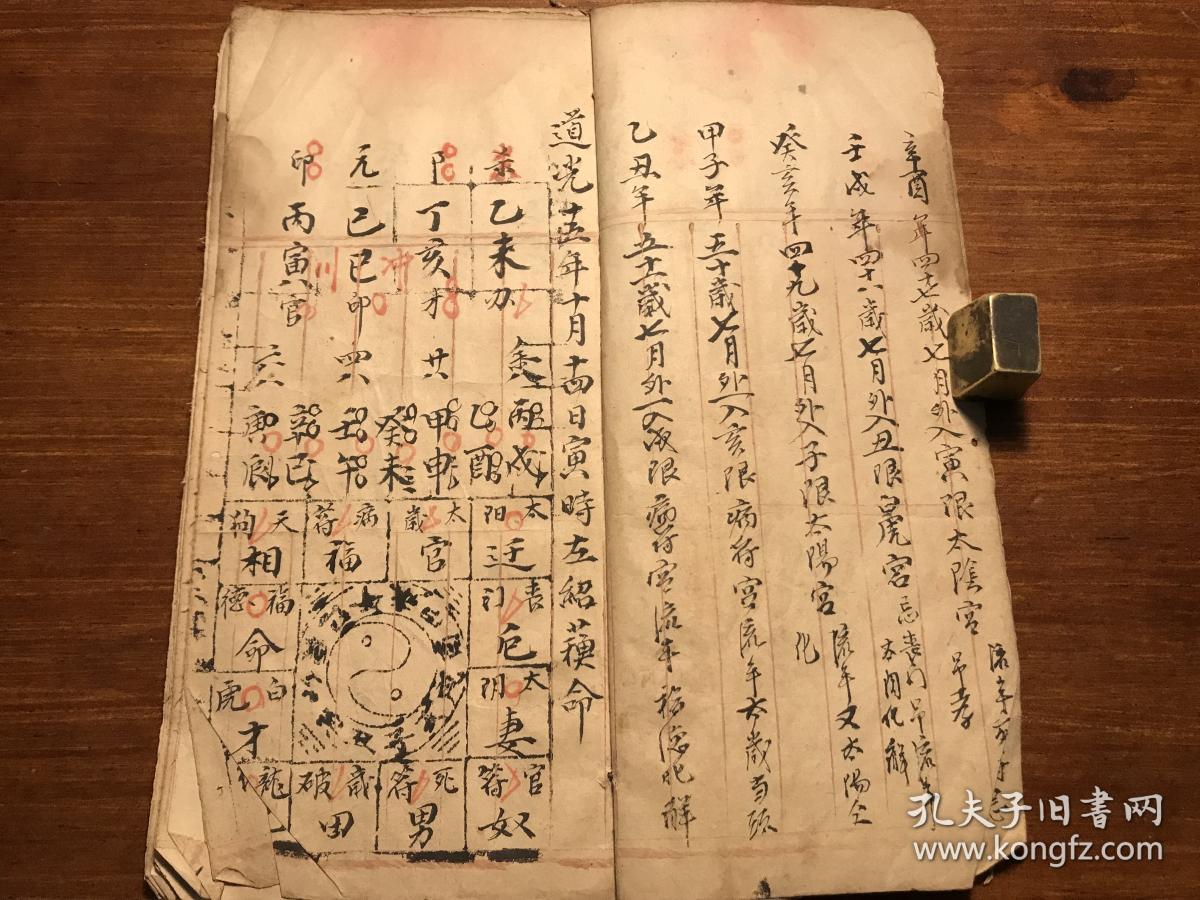 辛酉年四十七歲七月外入寅限太陰宮 吊孝
壬戌年四十八歲七月外入丑限白虎宮忌喪門吊
本月化解
癸亥年四十九歲七月外入子限太陽宮 流年又太陽
化
甲子年五十歲七月外入亥限病符宮流年太歲當頭
乙丑年五十一歲七月外入戌限病符宮流年福德化解
道光十五年十月十四日寅時左紹蘋命
乙未
丁亥才
己巳印
丙寅官
元
卯
丙戌
乙酉
甲申
癸未
壬午
辛巳
庚辰
太阳
迁
太歲
官
病符
福
天狗
相
丧门
厄
福德
命
太阴
妻
白虎
才
官符
奴
死符
男
歲破
田
龍
孔夫子旧书网
www.kongfz.com